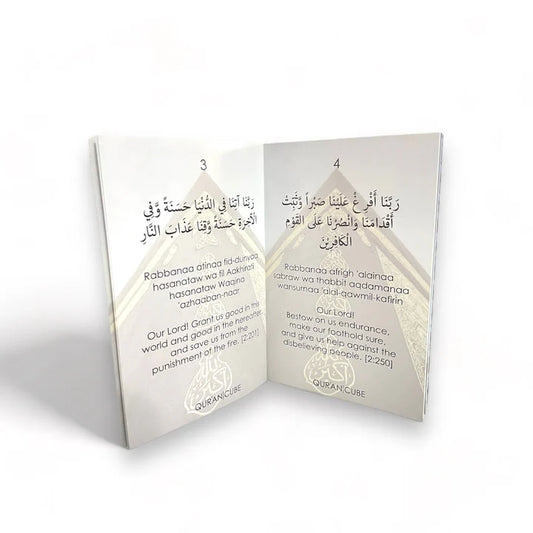 3
رَبَّنَا آتِنَا فِي الدُّنْيَا حَسَنَةً وَّفِي
الْآخِرَةِ حَسَنَةً وَّقِنَا عَذَابَ النَّارِ
Rabbanaa atinaa fid-dunyaa
hasanataw wa fil Aakhirati
hasanataw Waqina
'azhaaban-naar
Our Lord! Grant us good in this
world and good in the hereafter,
and save us from the
punishment of the fire. [2:201]
QURAN CUBE
4
رَبَّنَا أَفْرِغْ عَلَيْنَا صَبْراً وَّثَبِّتْ
أَقْدَامَنَا وَانْصُرْنَا عَلَى الْقَوْمِ
الْكَافِرِيْنَ
Rabbanaa afrigh 'alainaa
sabraw wa thabbit aqdamanaa
wansurnaa 'alal-qawmil-kafirin
Our Lord!
Bestow on us endurance,
make our foothold sure,
and give us help against the
disbelieving people. [2:250]
QURAN CUBE